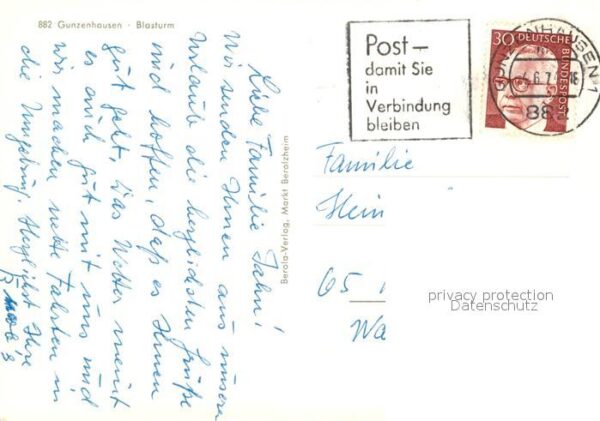 882 Gunzenhausen - Blasturm
Liebe Familie Jahn!
Wir senden Ihnen aus unserem
Urlaub die herzlichsten Grüße
und hoffen, daß es Ihnen
gut geht. Das Wetter meint
es auch gut mit uns und
wir machen nette Fahrten in
die Umgebung. Herzlichst Ihre
Berola-Verlag, Markt Berolzheim
Post—
damit Sie
in
Verbindung
bleiben
GUNZENHAUSEN 1
882
30 DEUTSCHE BUNDESPOST
Familie
Hein
65
Wa
privacy protection
Datenschutz